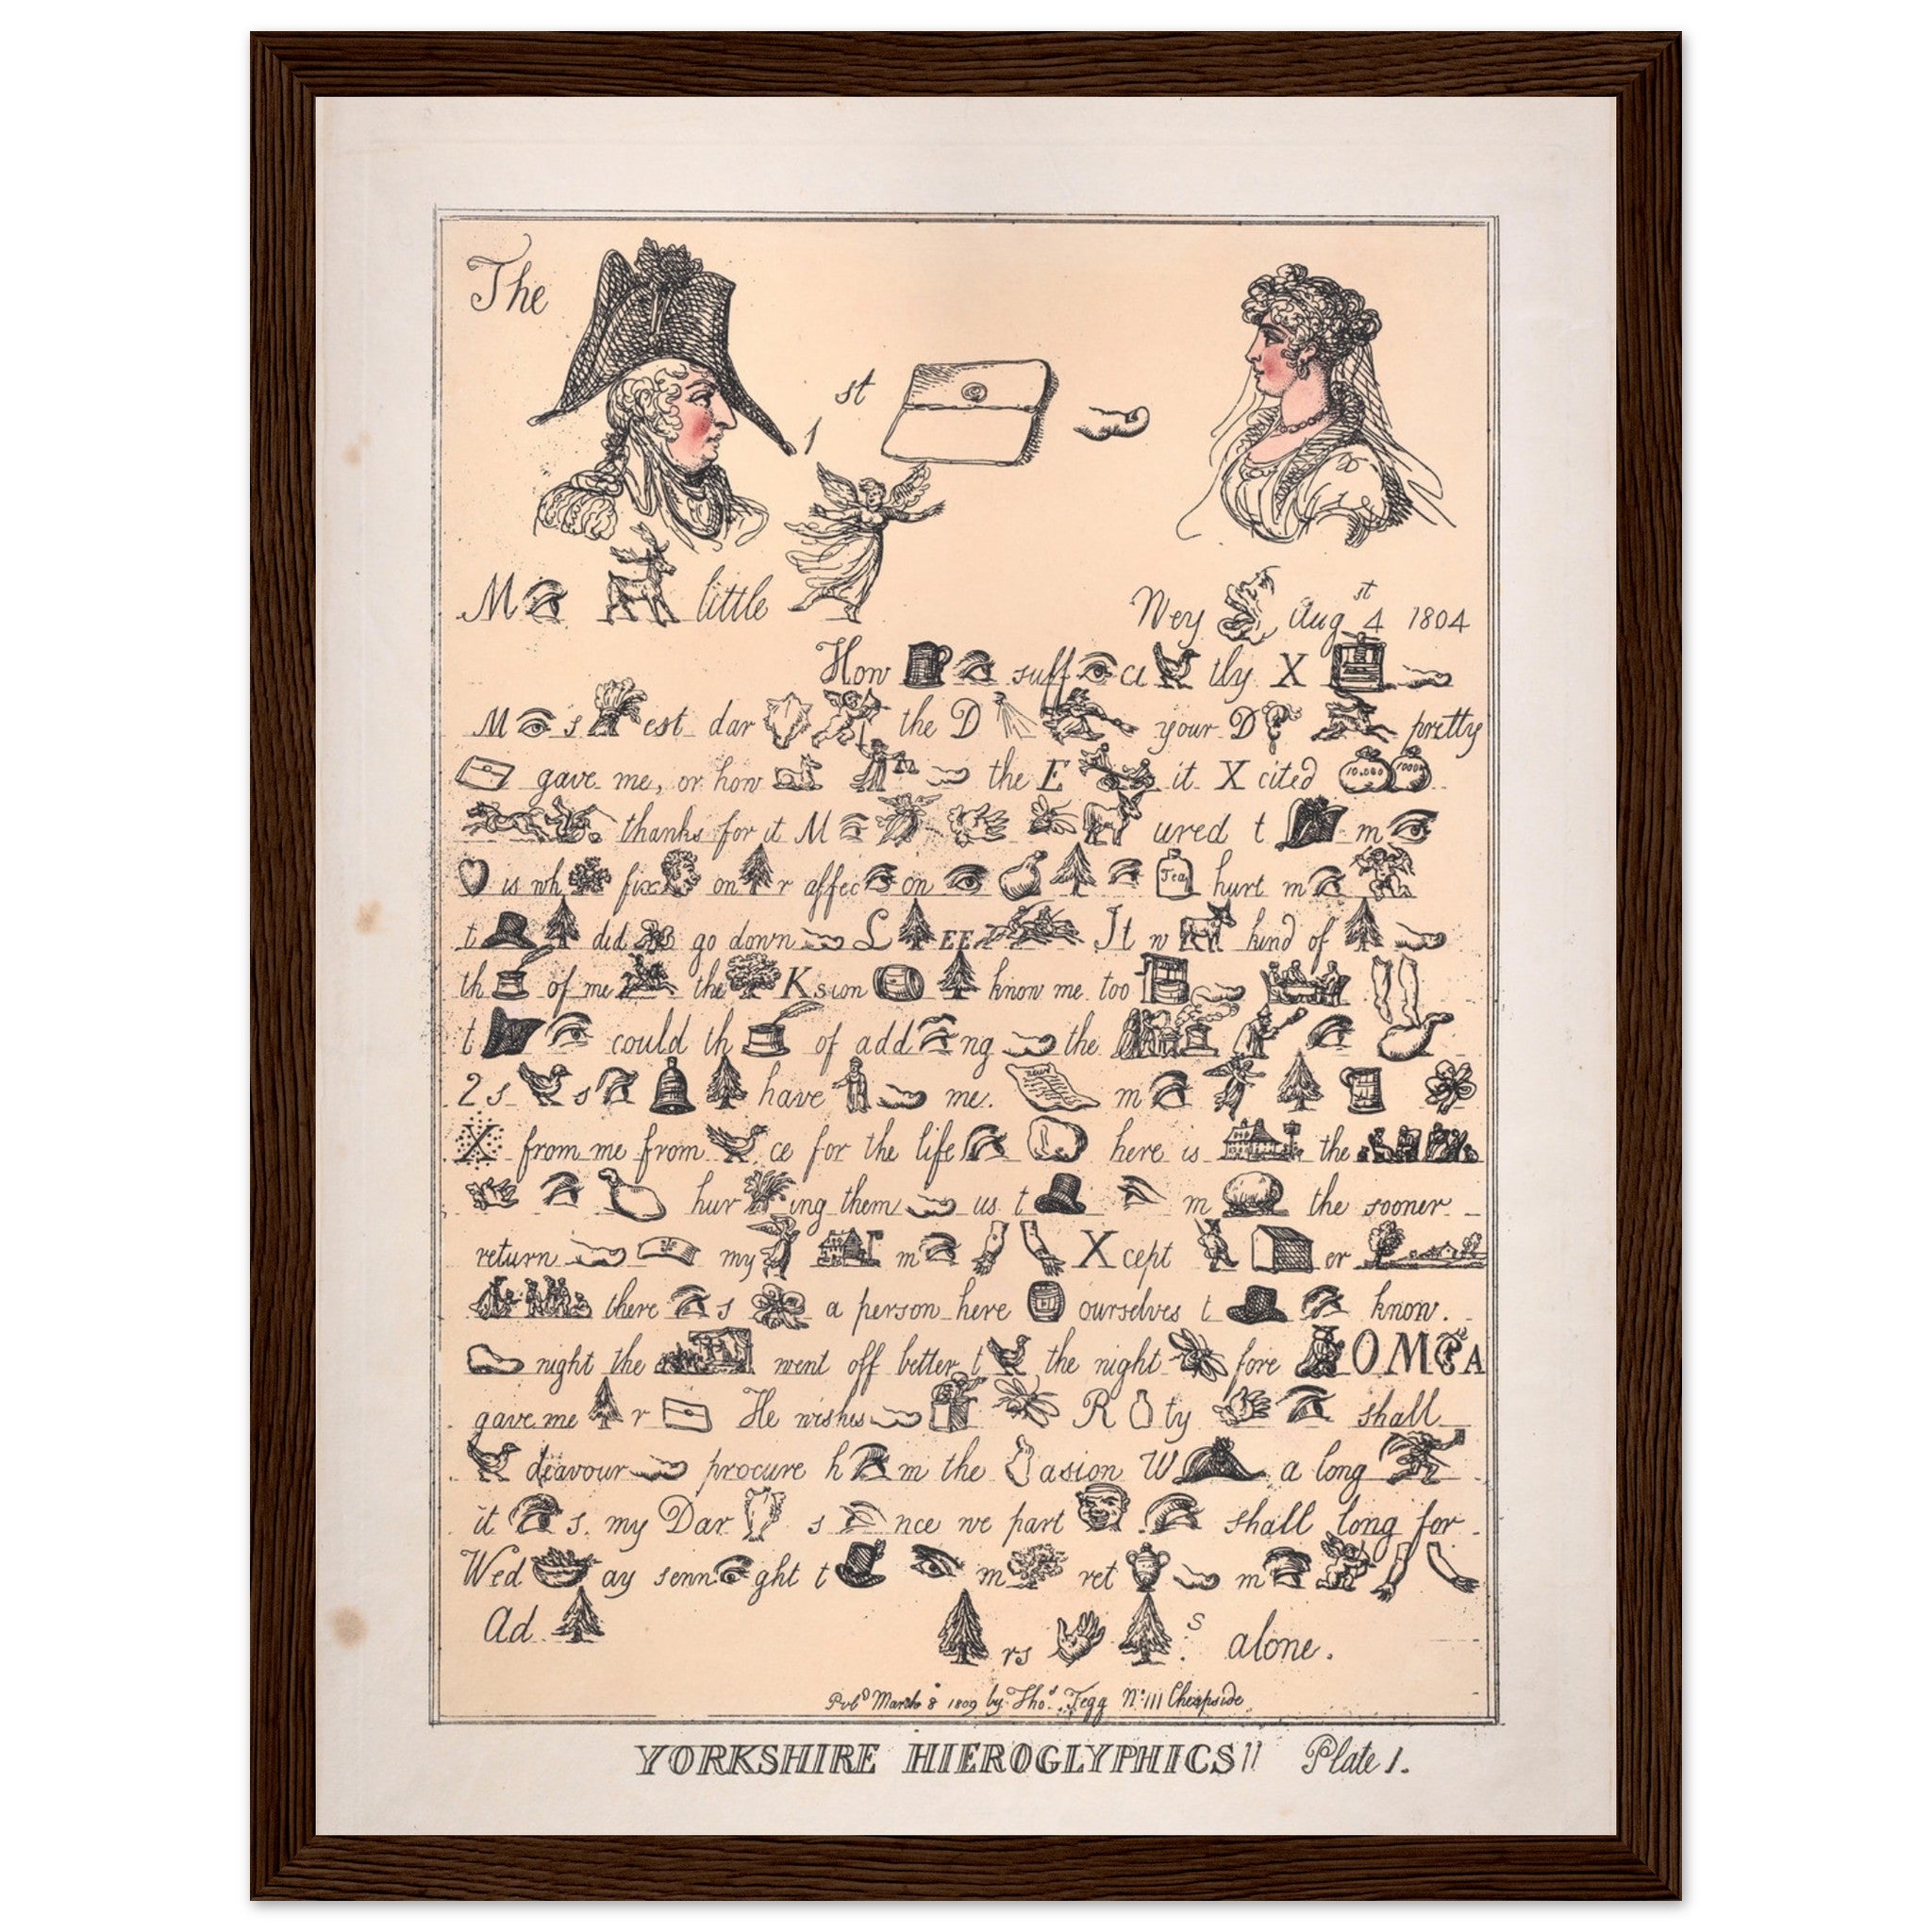 The 1 st
M little Wey Aug st 4 1804
How suff ci tly X
M s est dar the D your D pretty
gave me, or how the E it X cited 10,000 1000
thanks for it M ured t m
is wh fix on r affec on Tea hurt m
t did go down L EE It w kind of
th of me the K sion know me too
t could th of add ng the
2 s s have me. m
X from me from ce for the life here is the
hur ing them us t m the sooner
return my m X cept or
there s a person here ourselves t know.
night the went off better t the night fore O M A
gave me r He wishes R ty shall
deavour procure h m the asion W a long
it s. my Dar s nce we part shall long for
Wed ay senn ght t m ret m
Ad rs s alone.
Pubd March 8 1809 by Thos Tegg No 111 Cheapside.
YORKSHIRE HIEROGLYPHICS!! Plate 1.